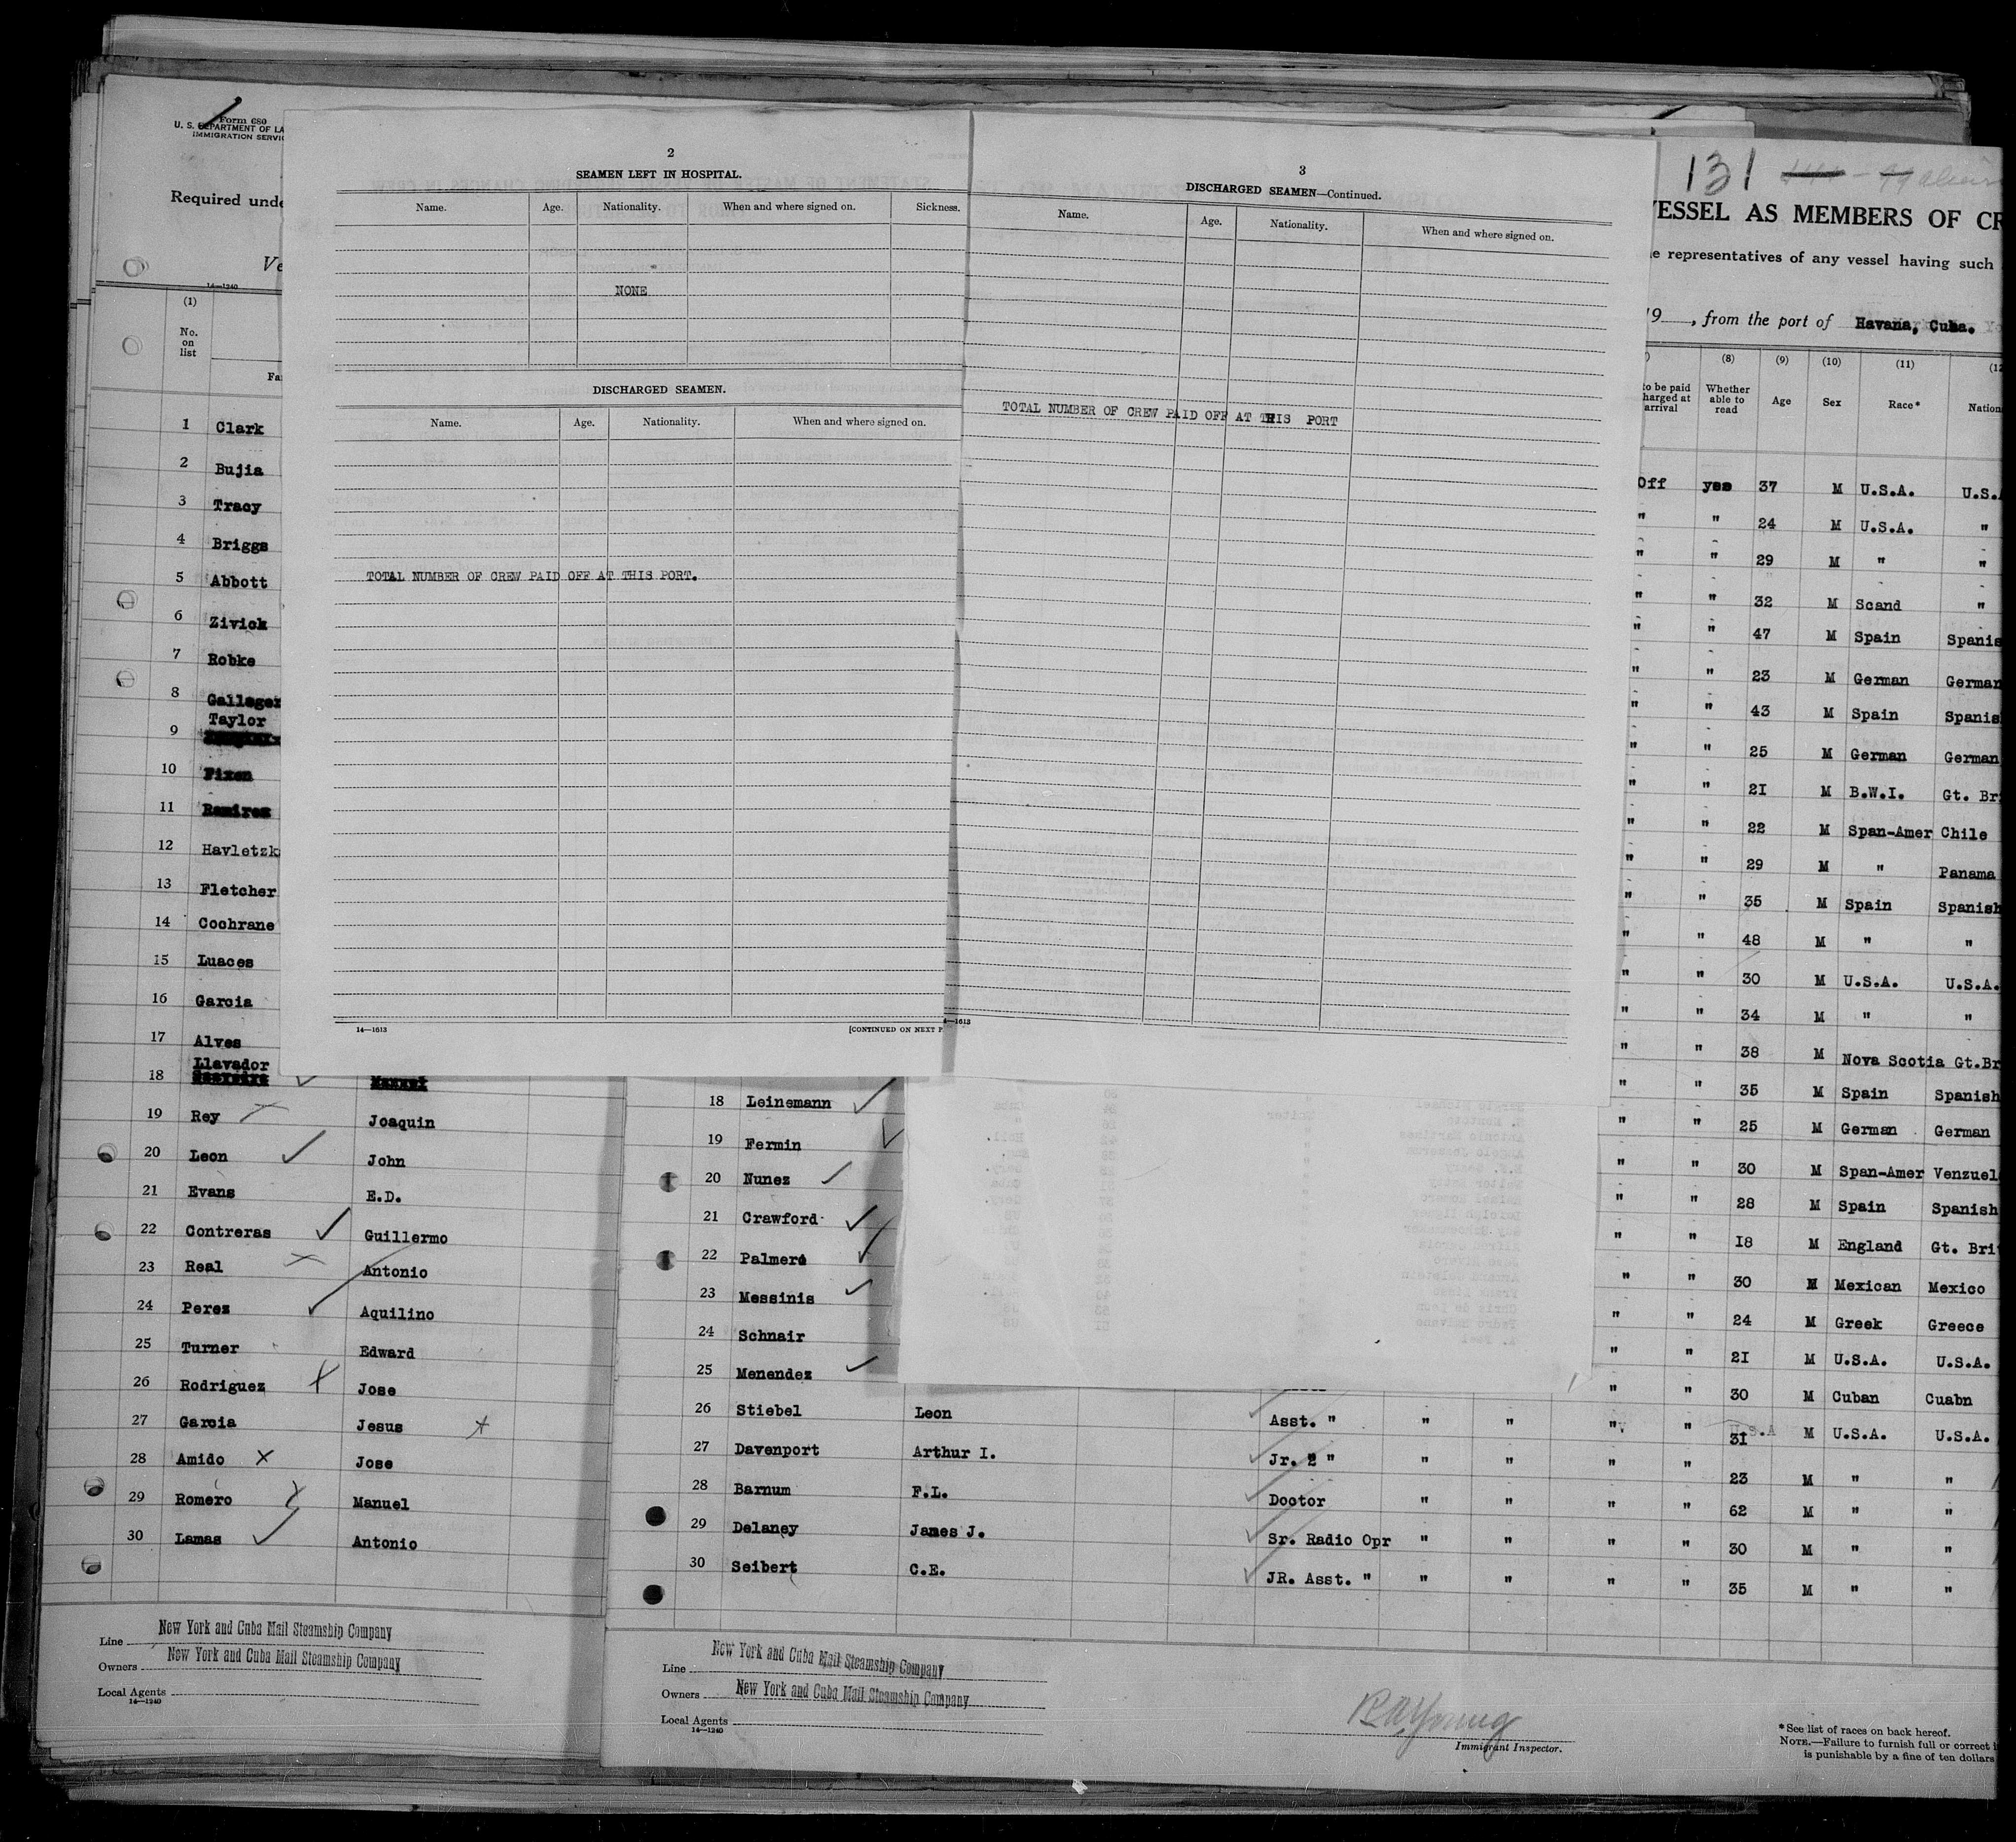 Form 680
U. S. DEPARTMENT OF LA
IMMIGRATION SERVIC
Required unde
Ve
14—1240
(1)
No.
on
list
Fa
1 Clark
2 Bujia
3 Tracy
4 Briggs
5 Abbott
6 Zivick
7 Robke
8 Gallager
Taylor
9
10 Fixen
11 Ramirez
12 Havletzk
13 Fletcher
14 Cochrane
15 Luaces
16 Garcia
17 Alves
Llavador
18
19 Rey Joaquin
20 Leon John
21 Evans E.D.
22 Contreras Guillermo
23 Real Antonio
24 Perez Aquilino
25 Turner Edward
26 Rodriguez Jose
27 Garcia Jesus
28 Amido Jose
29 Romero Manuel
30 Lamas Antonio
Line New York and Cuba Mail Steamship Company
Owners New York and Cuba Mail Steamship Company
Local Agents
14—1240
2
SEAMEN LEFT IN HOSPITAL.
Name. Age. Nationality. When and where signed on. Sickness.
NONE
DISCHARGED SEAMEN.
Name. Age. Nationality. When and where signed on.
TOTAL NUMBER OF CREW PAID OFF AT THIS PORT.
14—1613 [CONTINUED ON NEXT P
3
DISCHARGED SEAMEN—Continued.
Name. Age. Nationality. When and where signed on.
TOTAL NUMBER OF CREW PAID OFF AT THIS PORT
4—1613
131
VESSEL AS MEMBERS OF CR
e representatives of any vessel having such
19 , from the port of Havana, Cuba.
(8) (9) (10) (11) (12
to be paid
harged at
arrival
Whether
able to
read
Age Sex Race* Nation
Off yes 37 M U.S.A. U.S.
" " 24 M U.S.A. "
" " 29 M " "
" " 32 M Scand "
" " 47 M Spain Spanis
" " 23 M German German
" " 43 M Spain Spanis
" " 25 M German German
" " 21 M B.W.I. Gt. Br
" " 22 M Span-Amer Chile
" " 29 M " Panama
" " 35 M Spain Spanish
" " 48 M " "
" " 30 M U.S.A. U.S.A.
" " 34 M " "
" " 38 M Nova Scotia Gt.Br
" " 35 M Spain Spanish
18 Leinemann " " 25 M German German
19 Fermin " " 30 M Span-Amer Venzuel
20 Nunez " " 28 M Spain Spanish
21 Crawford " " 18 M England Gt. Bri
22 Palmere " " 30 M Mexican Mexico
23 Messinis " " 24 M Greek Greece
24 Schnair " " 21 M U.S.A. U.S.A.
25 Menendez " " 30 M Cuban Cuabn
26 Stiebel Leon Asst. " " " " " 31 M U.S.A. U.S.A.
27 Davenport Arthur I. Jr. 2 " " " " " 23 M " "
28 Barnum F.L. Doctor " " " " 62 M " "
29 Delaney James J. Sr. Radio Opr " " " " 30 M " "
30 Seibert C.E. JR. Asst. " " " " " 35 M " "
Line New York and Cuba Mail Steamship Company
Owners New York and Cuba Mail Steamship Company
Local Agents
14—1240
R A Young
Immigrant Inspector.
* See list of races on back hereof.
NOTE.—Failure to furnish full or correct i
is punishable by a fine of ten dollars